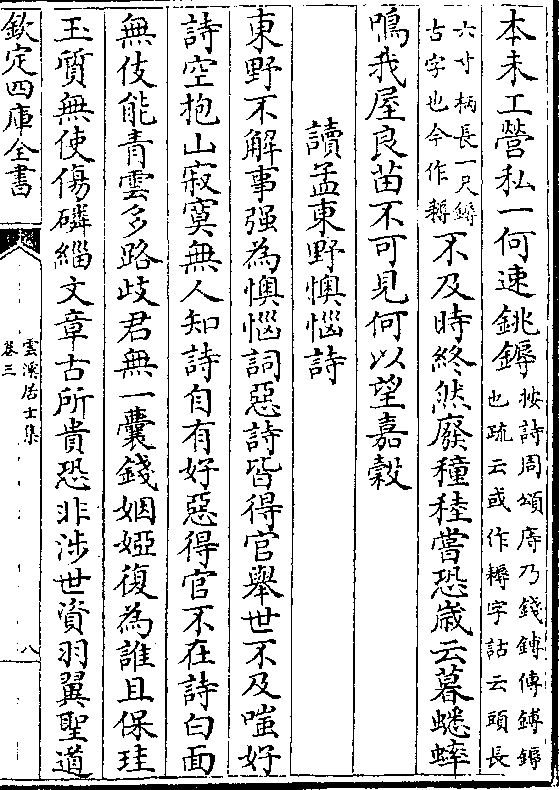 本未工營私一何速銚鎒按詩周頌庤乃錢鎛傳鎛鎒
也疏云或作耨字詁云頭長
六寸柄長一尺鎒
古字也今作耨不及時終然廢穜稑嘗恐歲云暮蟋蟀
鳴我屋良苗不可見何以望嘉穀
讀孟東野懊惱詩
東野不解事强為懊惱詞惡詩皆得官舉世不及嗤好
詩空抱山寂寞無人知詩自有好惡得官不在詩白面
無伎能青雲多路歧君無一囊錢姻婭復為誰且保珪
玉質無使傷磷緇文章古所貴恐非涉世資羽翼聖道
欽定四庫全書
雲溪居士集
卷三
八